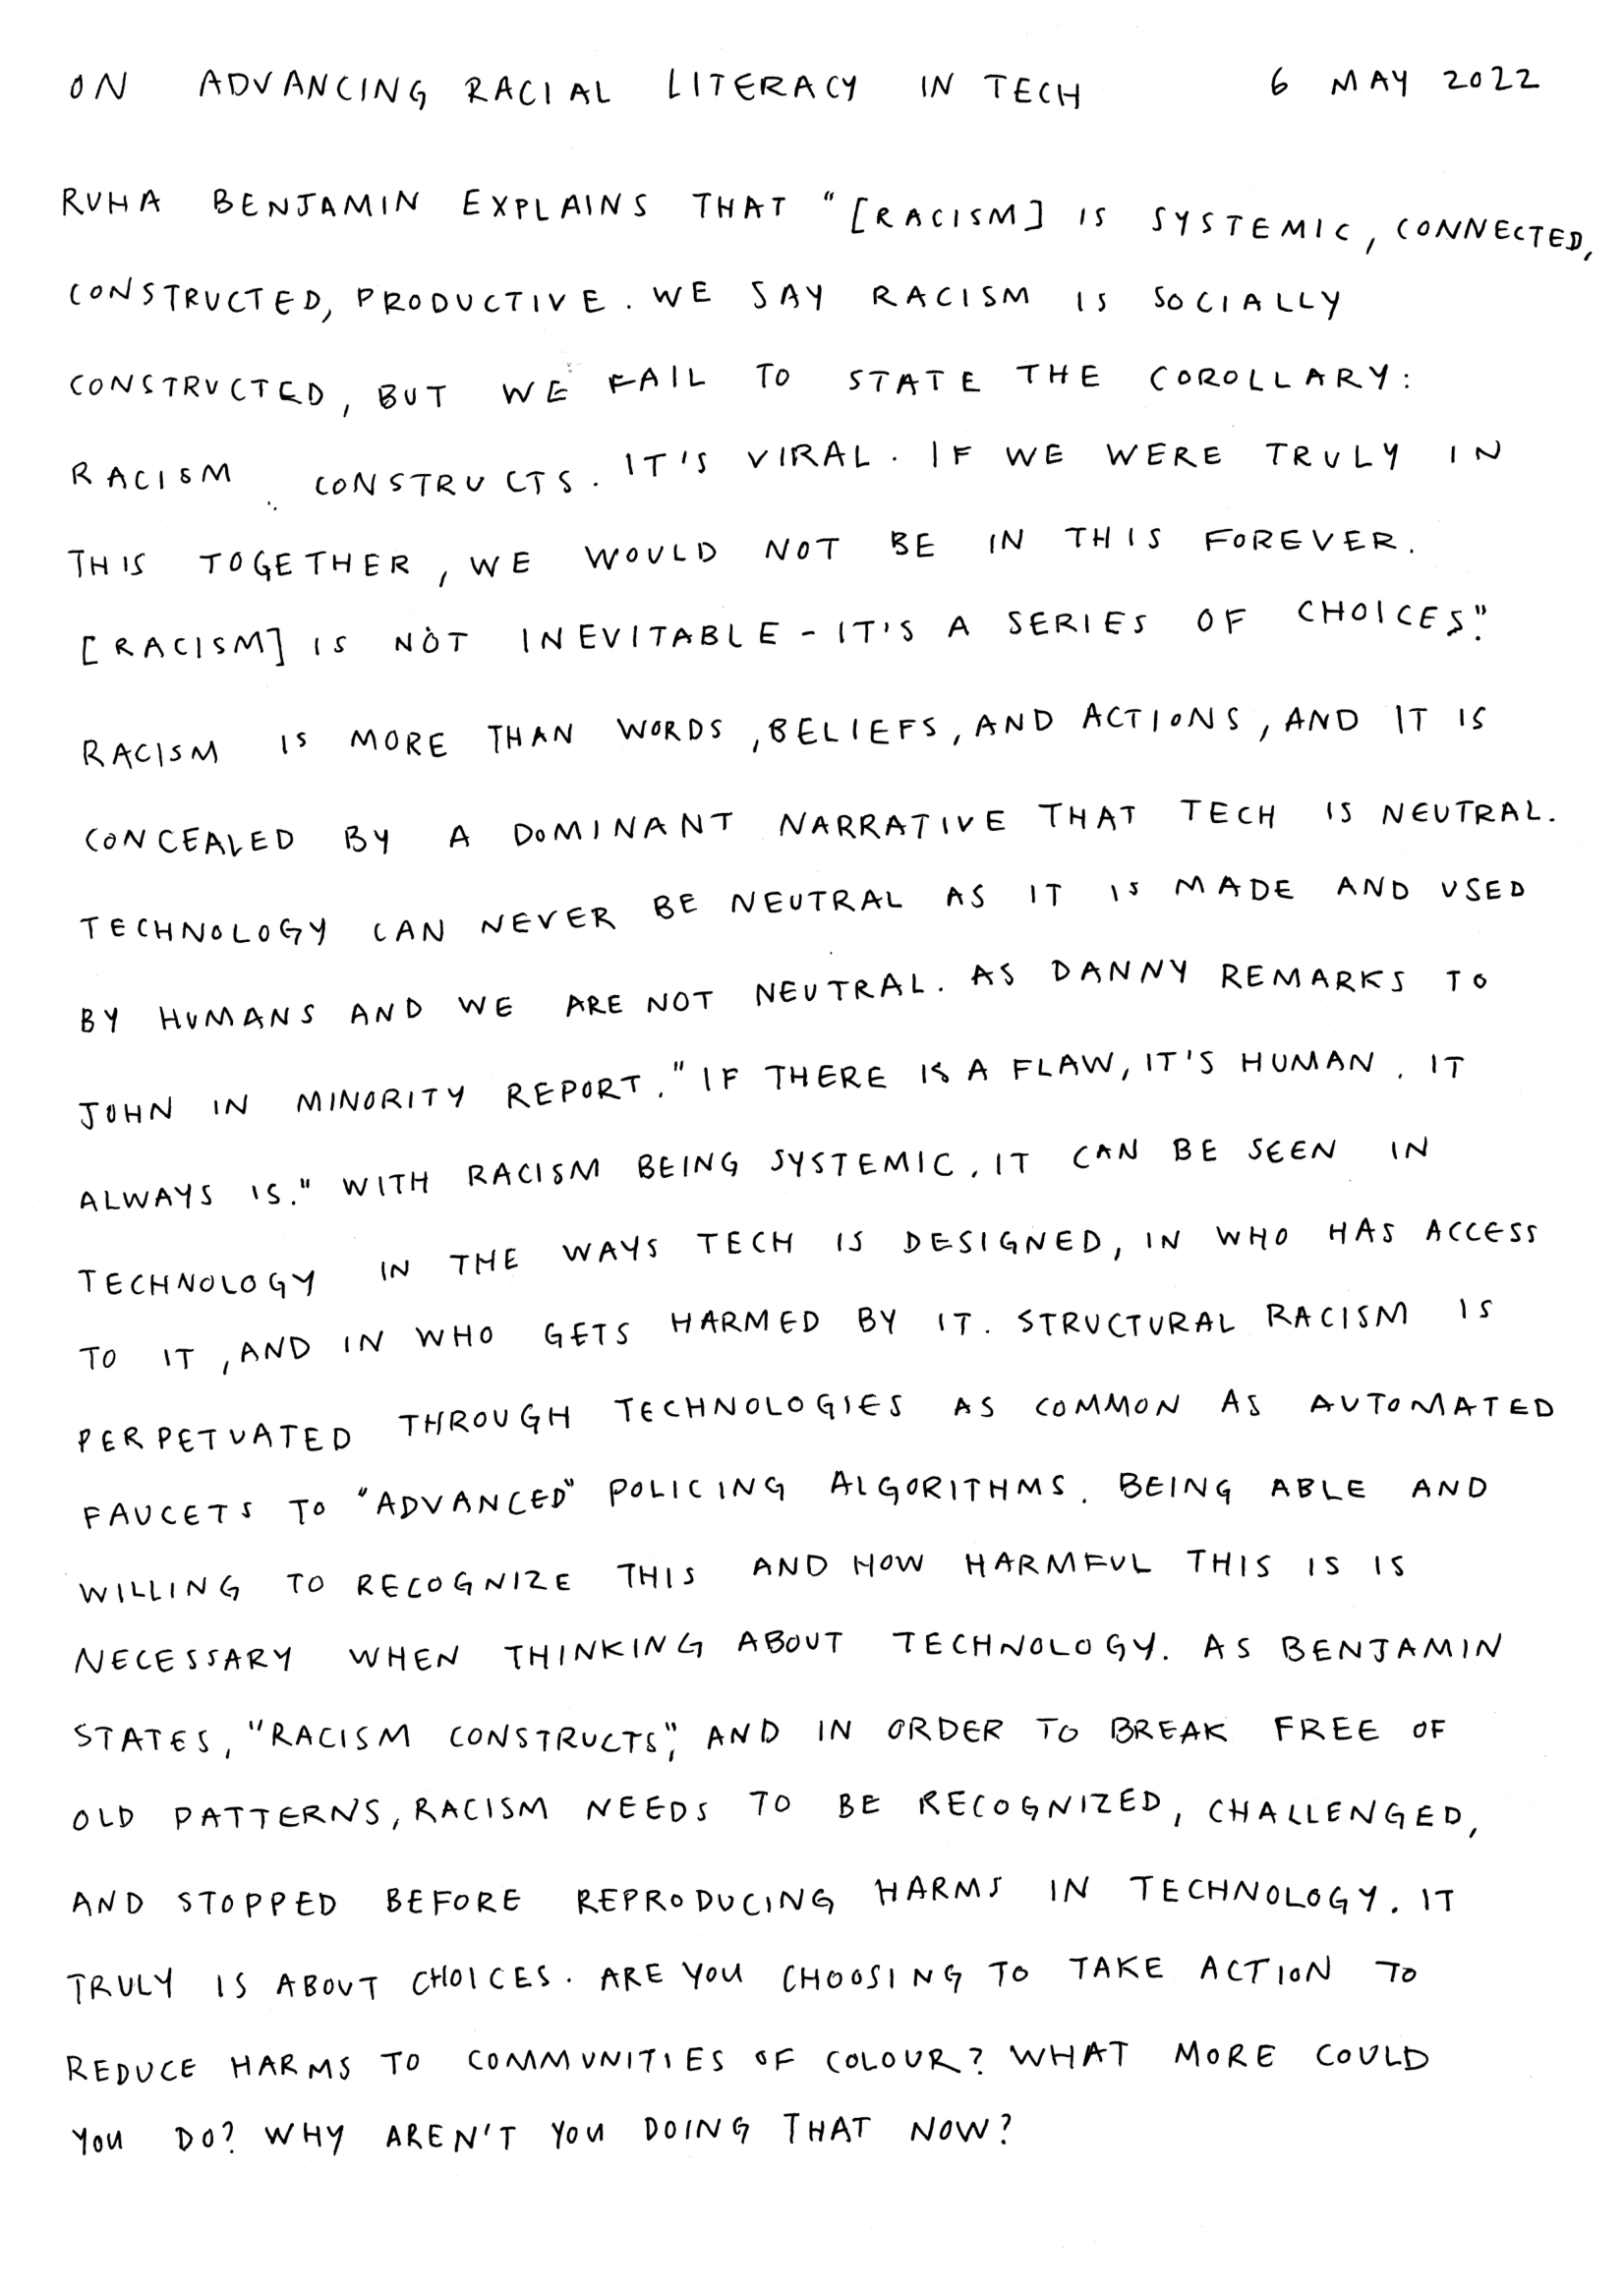 ON ADVANCING RACIAL LITERACY IN TECH 6 MAY 2022
RUHA BENJAMIN EXPLAINS THAT "[RACISM] IS SYSTEMIC, CONNECTED,
CONSTRUCTED, PRODUCTIVE. WE SAY RACISM IS SOCIALLY
CONSTRUCTED, BUT WE FAIL TO STATE THE COROLLARY:
RACISM CONSTRUCTS. IT'S VIRAL. IF WE WERE TRULY IN
THIS TOGETHER, WE WOULD NOT BE IN THIS FOREVER.
[RACISM] IS NOT INEVITABLE - IT'S A SERIES OF CHOICES."
RACISM IS MORE THAN WORDS, BELIEFS, AND ACTIONS, AND IT IS
CONCEALED BY A DOMINANT NARRATIVE THAT TECH IS NEUTRAL.
TECHNOLOGY CAN NEVER BE NEUTRAL AS IT IS MADE AND USED
BY HUMANS AND WE ARE NOT NEUTRAL. AS DANNY REMARKS TO
JOHN IN MINORITY REPORT, "IF THERE IS A FLAW, IT'S HUMAN. IT
ALWAYS IS." WITH RACISM BEING SYSTEMIC, IT CAN BE SEEN IN
TECHNOLOGY IN THE WAYS TECH IS DESIGNED, IN WHO HAS ACCESS
TO IT, AND IN WHO GETS HARMED BY IT. STRUCTURAL RACISM IS
PERPETUATED THROUGH TECHNOLOGIES AS COMMON AS AUTOMATED
FAUCETS TO "ADVANCED" POLICING ALGORITHMS. BEING ABLE AND
WILLING TO RECOGNIZE THIS AND HOW HARMFUL THIS IS IS
NECESSARY WHEN THINKING ABOUT TECHNOLOGY. AS BENJAMIN
STATES, "RACISM CONSTRUCTS", AND IN ORDER TO BREAK FREE OF
OLD PATTERNS, RACISM NEEDS TO BE RECOGNIZED, CHALLENGED,
AND STOPPED BEFORE REPRODUCING HARMS IN TECHNOLOGY. IT
TRULY IS ABOUT CHOICES. ARE YOU CHOOSING TO TAKE ACTION TO
REDUCE HARMS TO COMMUNITIES OF COLOUR? WHAT MORE COULD
YOU DO? WHY AREN'T YOU DOING THAT NOW?